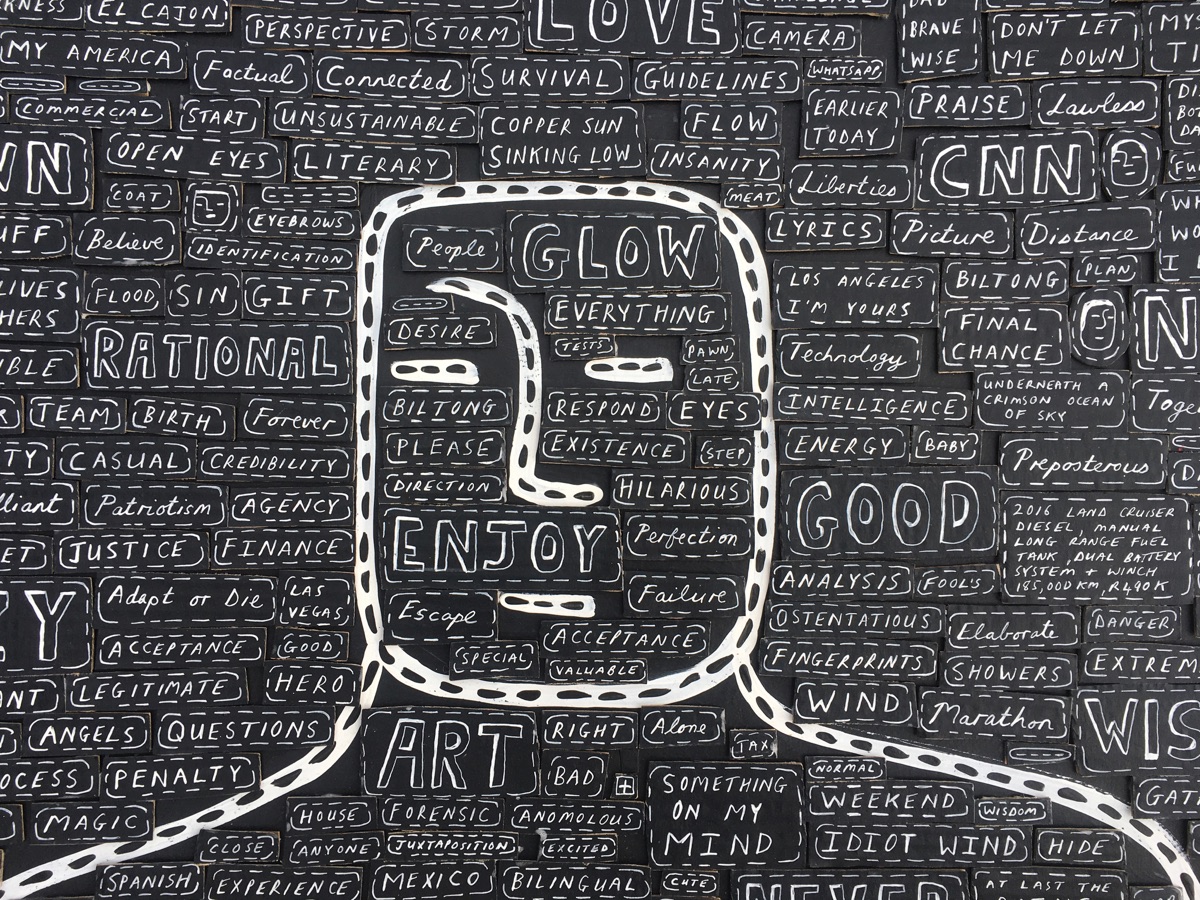 EL CAJON
PERSPECTIVE
STORM
LOVE
CAMERA
BRAVE
WISE
DON'T LET
ME DOWN
MY AMERICA
Factual
Connected
SURVIVAL
GUIDELINES
WHATSAPP
COMMERCIAL
START
UNSUSTAINABLE
COPPER SUN
SINKING LOW
FLOW
EARLIER
TODAY
PRAISE
Lawless
OPEN EYES
LITERARY
INSANITY
Liberties
CNN
COAT
EYEBROWS
MEAT
LYRICS
Picture
Distance
Believe
IDENTIFICATION
People
GLOW
LOS ANGELES
I'M YOURS
BILTONG
PLAN
FLOOD
SIN
GIFT
EVERYTHING
FINAL
CHANCE
RATIONAL
DESIRE
TESTS
PAWN
LATE
Technology
UNDERNEATH A
CRIMSON OCEAN
OF SKY
TEAM
BIRTH
Forever
BILTONG
RESPOND
EYES
INTELLIGENCE
CASUAL
CREDIBILITY
PLEASE
EXISTENCE
STEP
ENERGY
BABY
Preposterous
Patriotism
AGENCY
DIRECTION
HILARIOUS
GOOD
2016 LAND CRUISER
DIESEL, MANUAL
LONG RANGE FUEL
TANK, DUAL BATTERY
SYSTEM + WINCH
185,000KM, R490K
JUSTICE
FINANCE
ENJOY
Perfection
ANALYSIS
FOOL'S
Adapt or Die
LAS
VEGAS,
Escape
Failure
OSTENTATIOUS
Elaborate
DANGER
ACCEPTANCE
GOOD
ACCEPTANCE
SPECIAL
VALUABLE
FINGERPRINTS
SHOWERS
LEGITIMATE
HERO
WIND
Marathon
ANGELS
QUESTIONS
ART
RIGHT
Alone
TAX
PENALTY
BAD
SOMETHING
ON MY
MIND
NORMAL
WEEKEND
WISDOM
MAGIC
HOUSE
FORENSIC
ANOMOLOUS
IDIOT WIND
HIDE
CLOSE
ANYONE
JUXTAPOSITION
EXCITED
SPANISH
EXPERIENCE
MEXICO
BILINGUAL
CUTE
NEVER
AT LAST THE